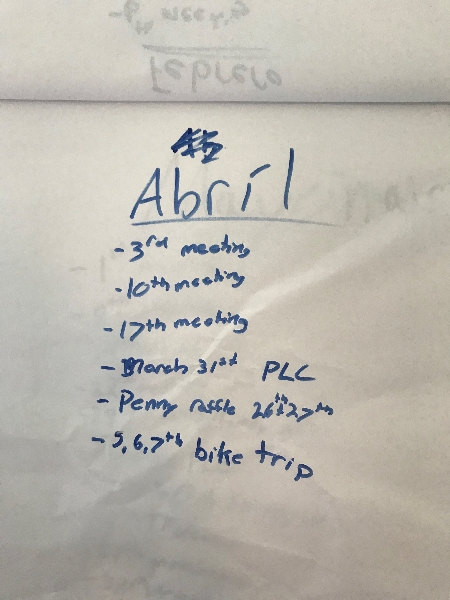 Febrero
-6th meeting
Abríl
-3rd meeting
-10th meeting
-17th meeting
-March 31st PLC
-Penny raffle 26th+27th
-5,6,7th bike trip